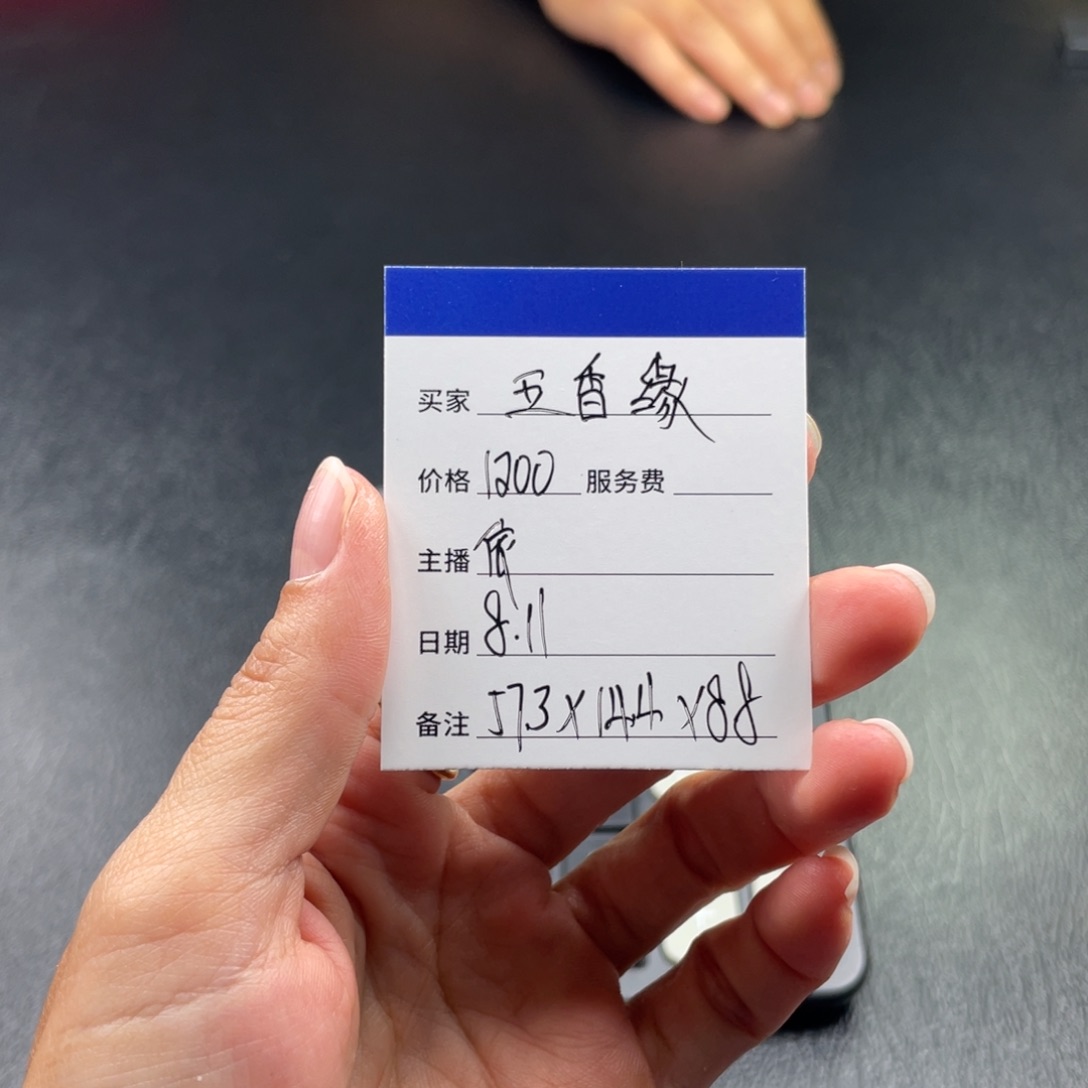 买家 五香缘
价格 1200 服务费
主播 依
日期 8.11
备注 57.3×14.4×8.8